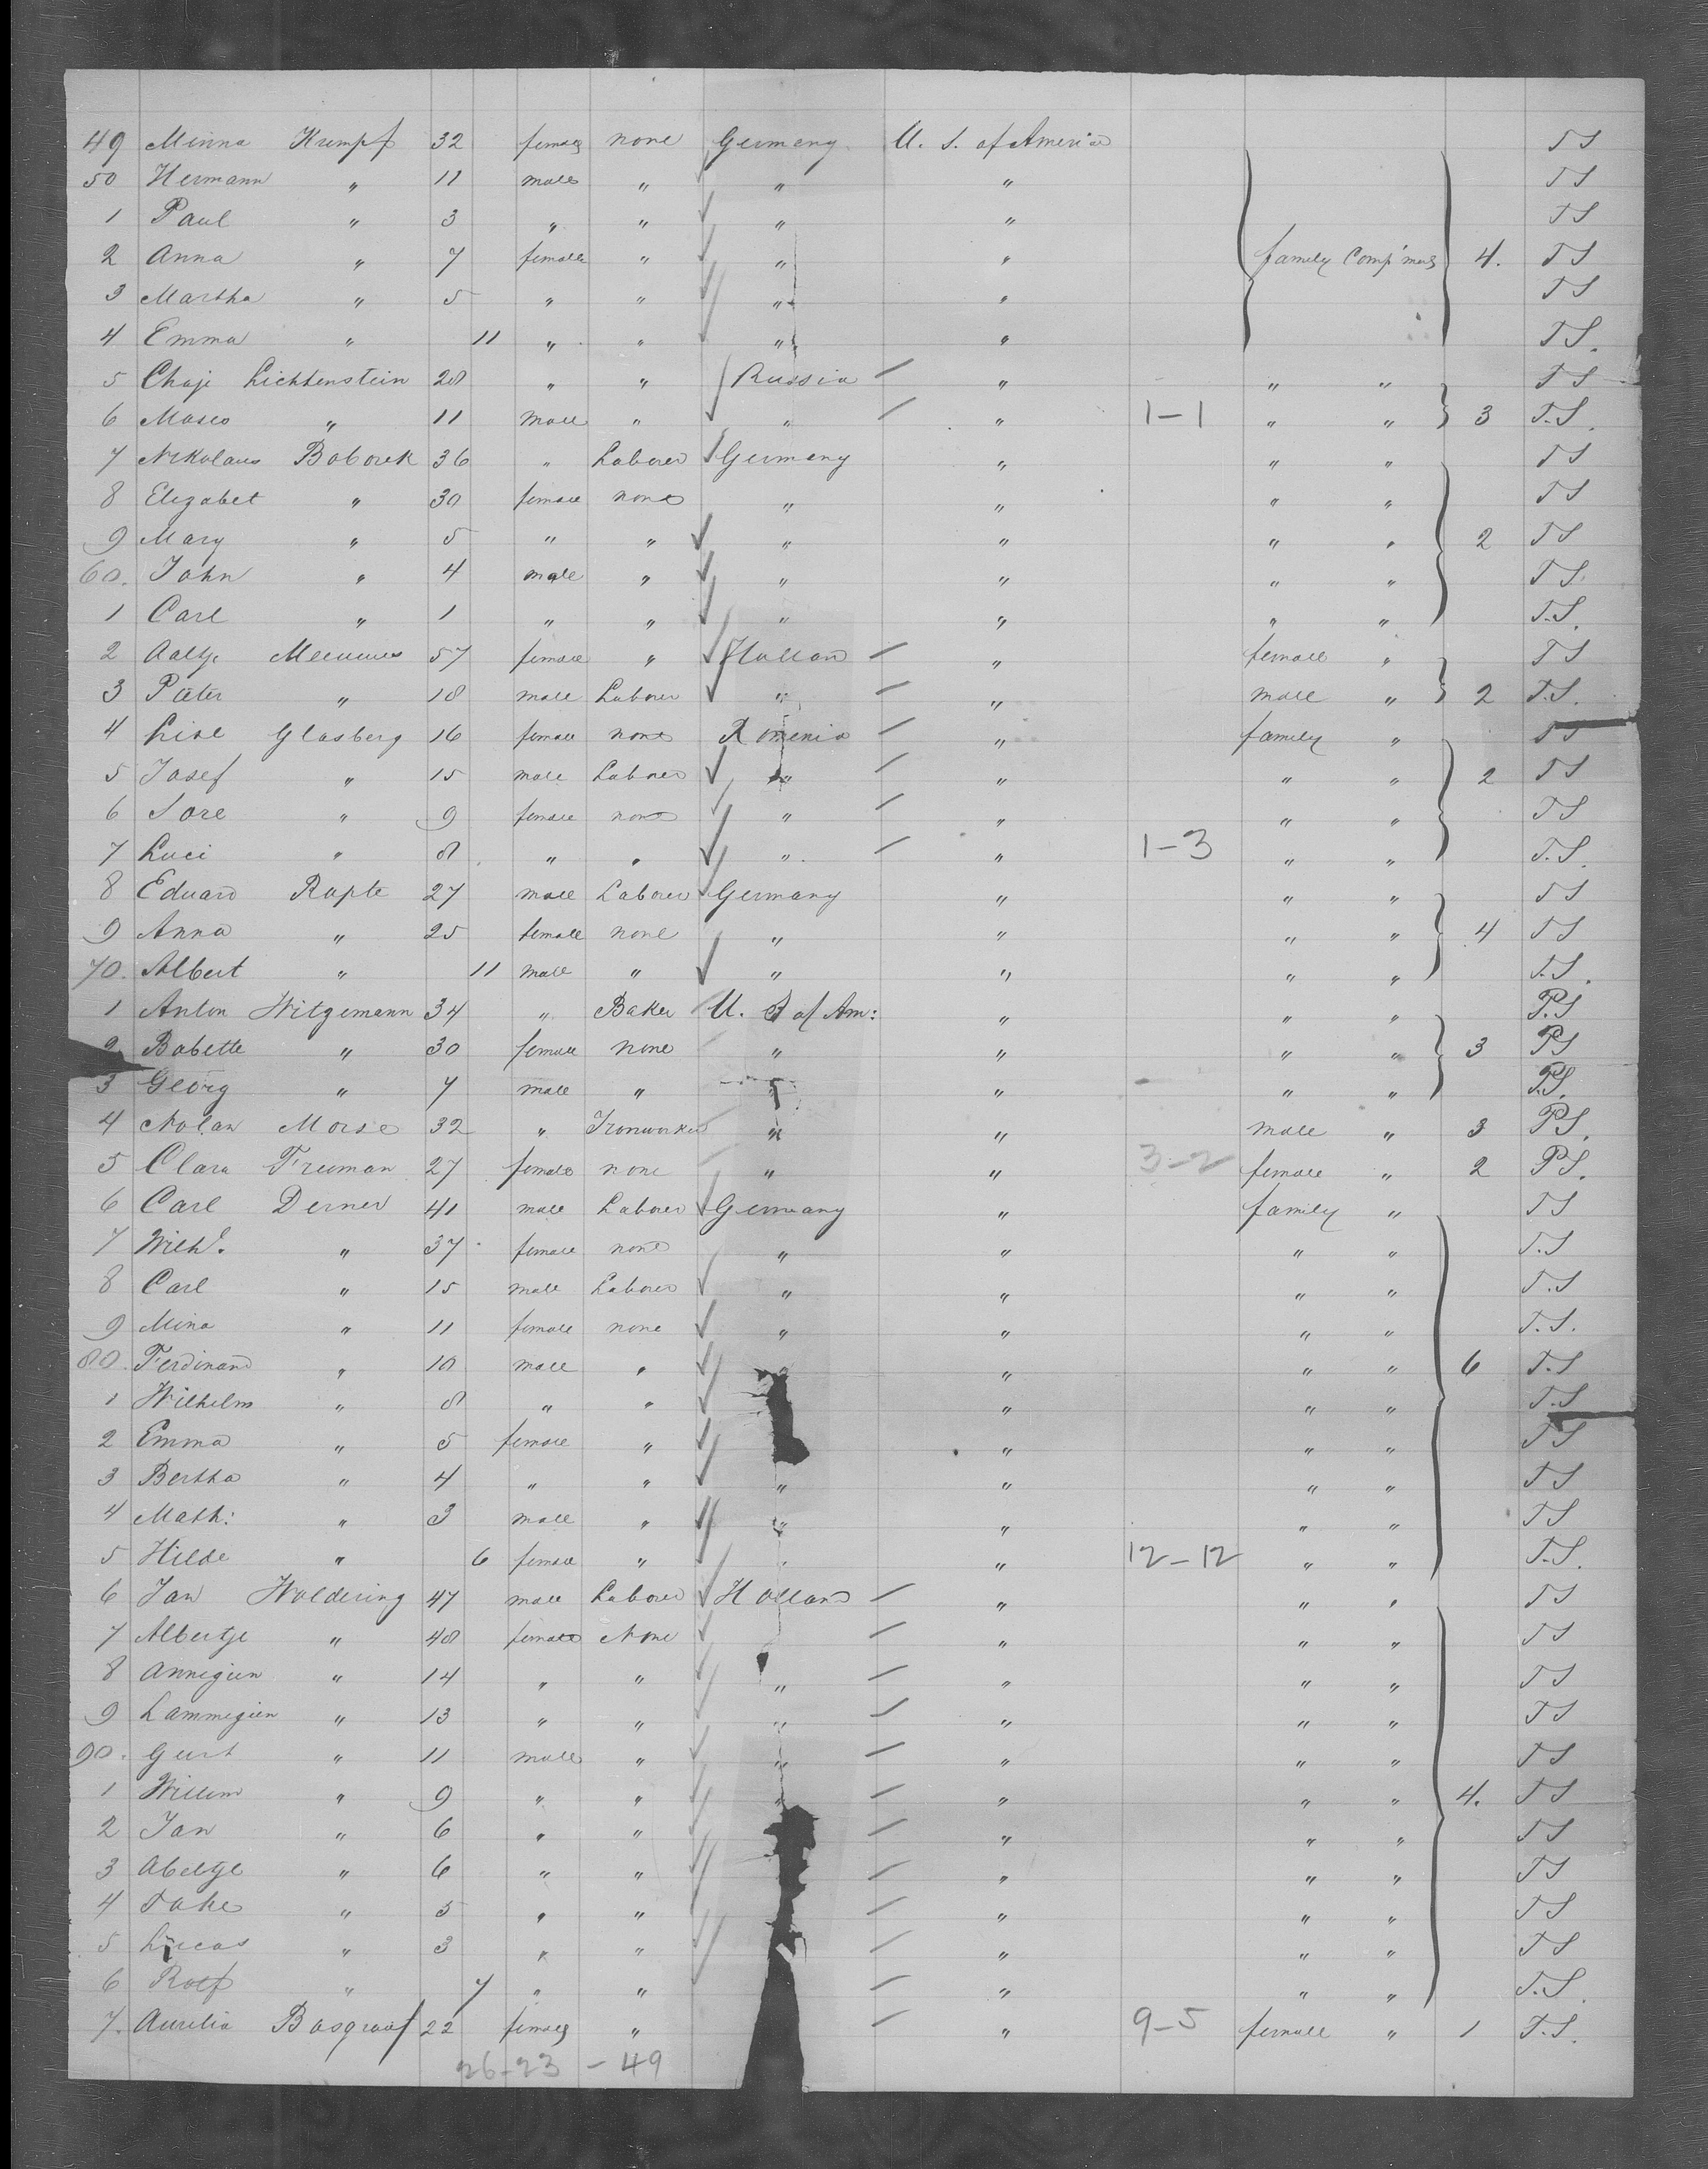 49 Minna Krempf 32 female none Germany U. S. of America TS
50 Hermann " 11 male " " " TS
1 Paul " 3 " " " " TS
2 Anna " 7 female " " " family Comp'med 4. TS
3 Martha " 5 " " " " TS
4 Emma " 11 " " " " TS.
5 Chaje Lichtenstein 28 " " Russia " " " TS
6 Moses " 11 male " " " 1-1 " " 3 T.S.
7 Nikolaus Boborek 36 " Laborer Germany " " " TS
8 Elizabet " 30 female none " " " " TS
9 Mary " 5 " " " " " " 2 TS
60. John " 4 male " " " " " TS.
1 Carl " 1 " " " " " " T.S.
2 Aaltje 57 female " Holland " female " TS
3 Pieter " 18 male Laborer " " male " 2 T.S.
4 Lise Glasberg 16 female none Romenia " family " TS
5 Josef " 15 male Laborer " " " " 2 TS
6 Sore " 9 female none " " " " TS
7 Luci " 8 " " " " 1-3 " " T.S.
8 Eduard Rapte 27 male Laborer Germany " " " TS
9 Anna " 25 female none " " " " 4 TS
70. Albert " 11 male " " " " " T.S.
1 Anton Witgemann 34 " Baker U. S of Am: " " " P.S
2 Babette " 30 female none " " " " 3 PS
3 Georg " 7 male " " " " " P.S.
4 Nolan Morse 32 " Ironworker " " male " 3 PS.
5 Clara Freeman 27 female none " " 3-2 female " 2 PS.
6 Carl Derner 41 male Laborer Germany " family " TS
7 Wilh. " 37 female none " " " " T.S
8 Carl " 15 male Laborer " " " " T.S
9 Mina " 11 female none " " " " T.S.
80. Ferdinand " 10 male " " " " 6 T.S
1 Wilhelm " 8 " " " " " T.S
2 Emma " 5 female " " " " TS
3 Bertha " 4 " " " " " " TS
4 Math: " 3 male " " " " " TS
5 Hilde " 6 female " " " 12-12 " " T.S.
6 Jan Woldering 47 male Laborer Holland " " " TS
7 Albertje " 48 female None " " " TS
8 Annegien " 14 " " " " " " TS
9 Lammegien " 13 " " " " " " TS
90. Geert " 11 male " " " " " TS
1 Willem " 9 " " " " " " 4. TS
2 Jan " 6 " " " " " TS
3 Abeltje " 6 " " " " " TS
4 " 5 " " " " " TS
5 Lucas " 3 " " " " " TS
6 Roelf " 7 " " " " " T.S.
7. Aurelia Basgraaf 22 female " " 9-5 female " 1 T.S.
26-23 - 49